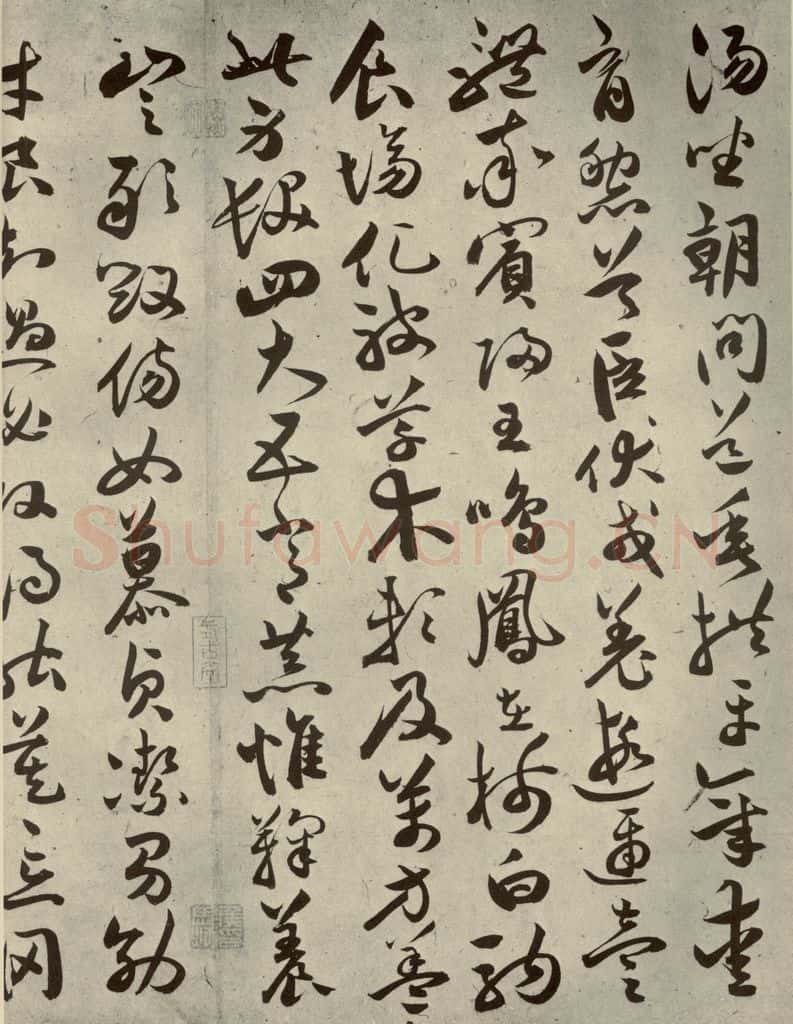 湯坐朝問道垂拱平章愛
育黎首臣伏戎羌遐邇壹
體率賓歸王鳴鳳在樹白駒
食場化被草木賴及萬方蓋
此身髮四大五常恭惟鞠養
豈敢毀傷女慕貞潔男效
才良知過必改得能莫忘罔
Shufawang.CN